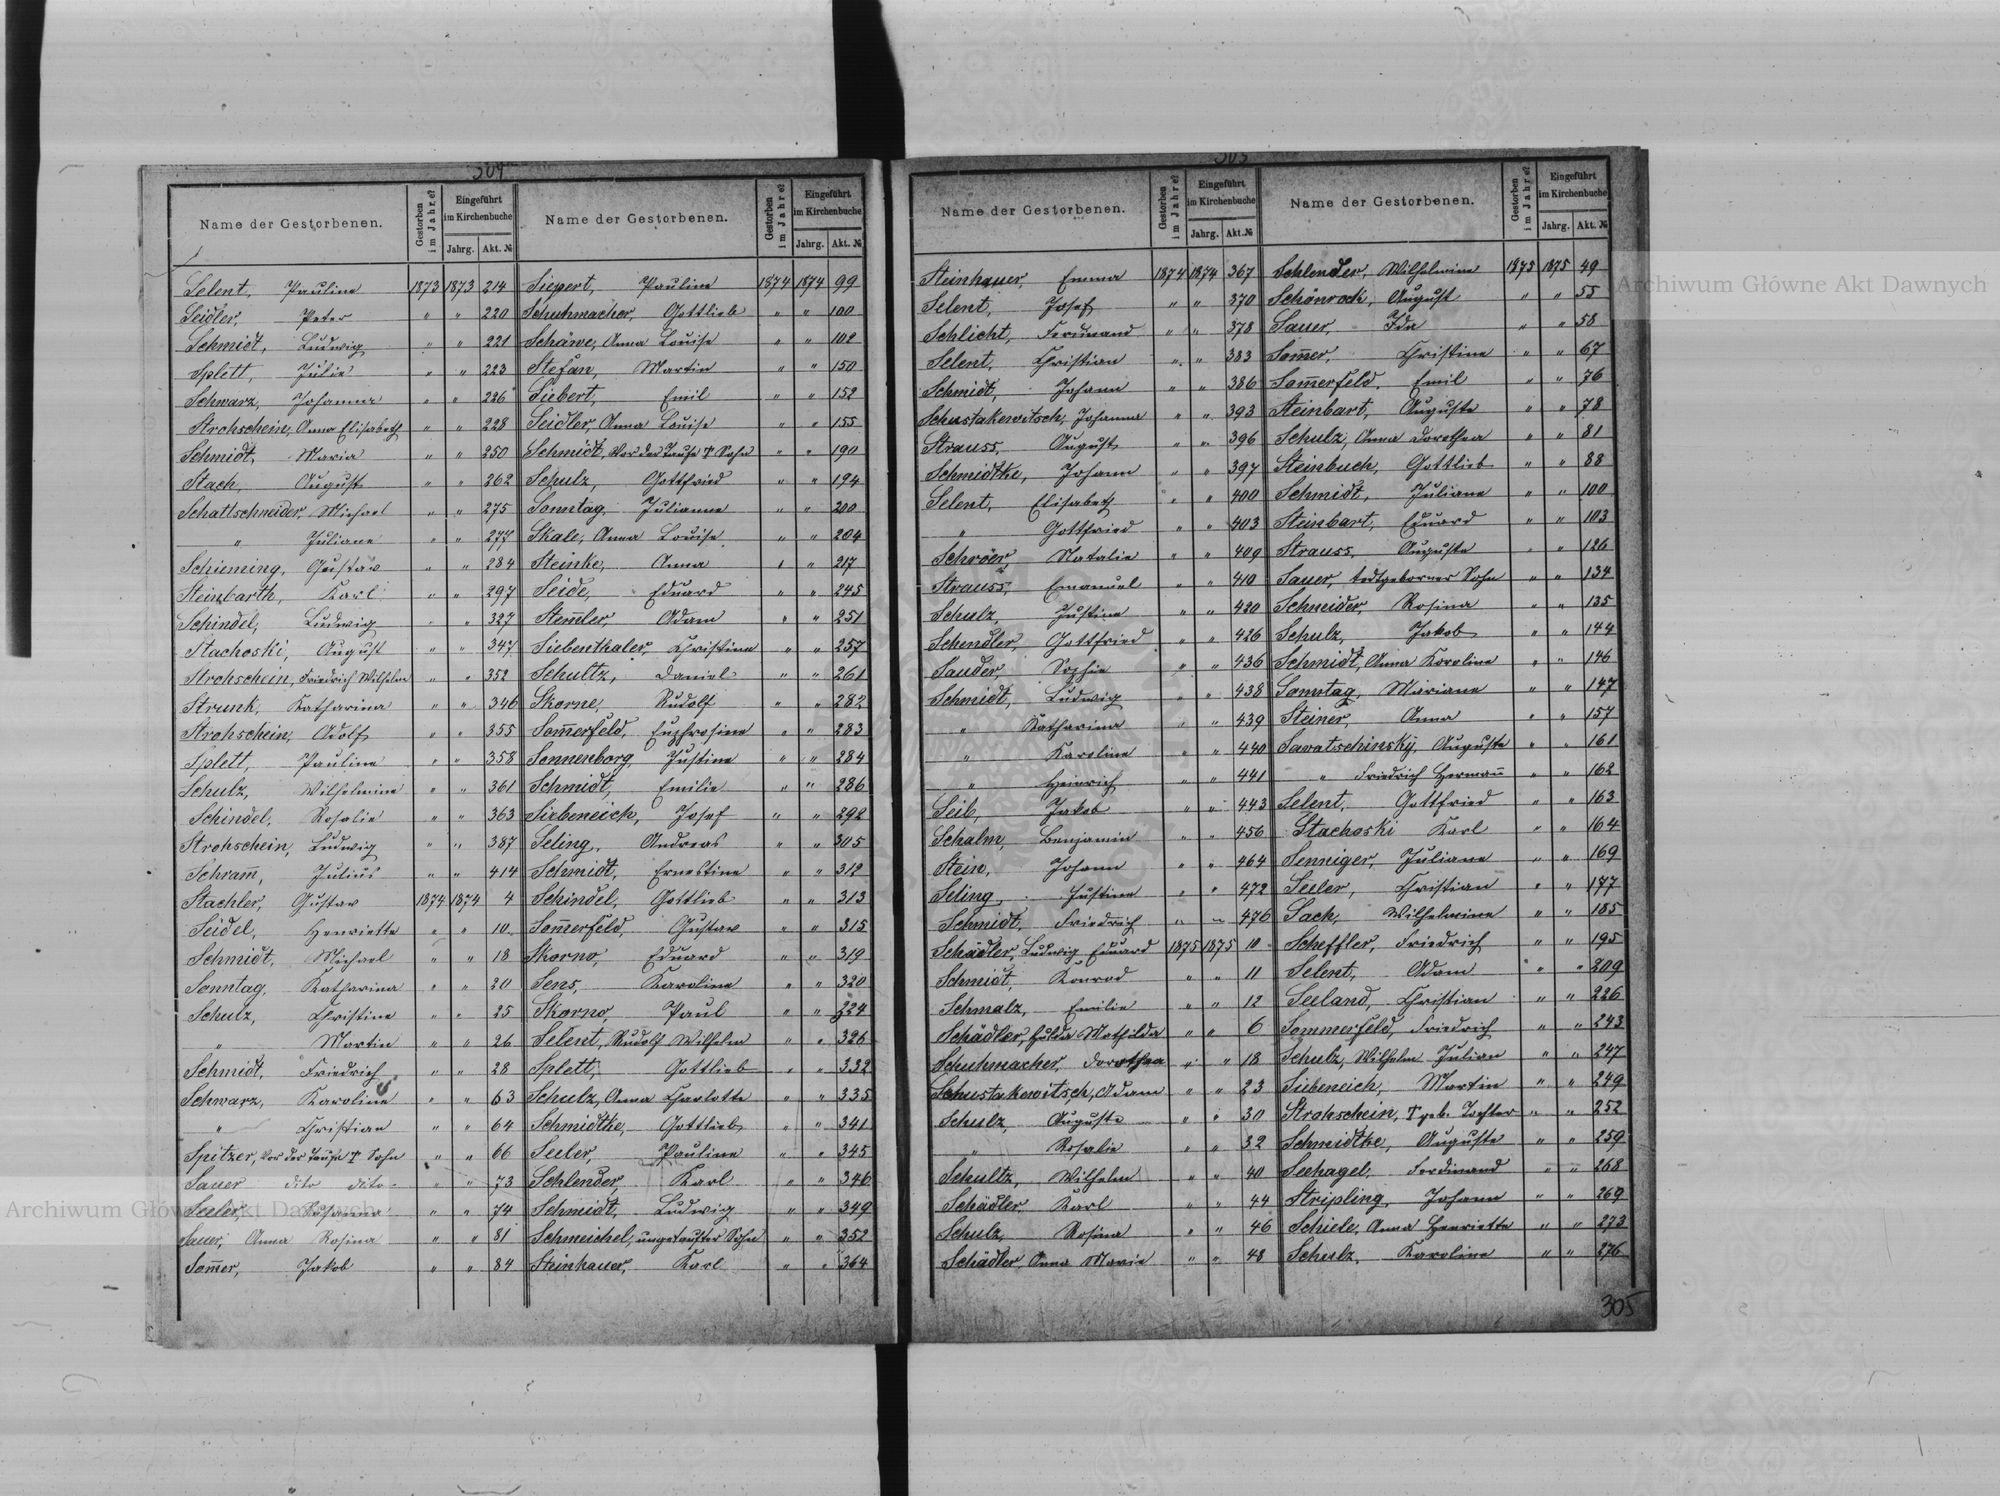 304
Name der Gestorbenen. Gestorben im Jahre? Eingeführt im Kirchenbuche Jahrg. Akt. №
Selent, Pauline 1873 1873 214
Seidler, Peter " " 220
Schmidt, Ludwig " " 221
Splett, Julie " " 223
Schwarz, Johanna " " 226
Strohschein, Anna Elisabeth " " 228
Schmidt, Maria " " 250
Stach, August " " 262
Schattschneider, Michael " " 275
" Juliane " " 277
Schieming, Gustav " " 284
Steinbarth, Karl " " 297
Schindel, Ludwig " " 327
Stachoski, August " " 347
Strohschein, Friedrich Wilhelm " " 352
Strunk, Katharina " " 346
Strohschein, Adolf " " 355
Splett, Pauline " " 358
Schulz, Wilhelmine " " 361
Schindel, Rosalie " " 363
Strohschein, Ludwig " " 387
Schram̄, Julius " " 414
Stachler, Gustav 1874 1874 4
Seidel, Henriette " " 10
Schmidt, Michael " " 18
Sonntag, Katharina " " 20
Schulz, Christine " " 25
" Martin " " 26
Schmidt, Friedrich " " 28
Schwarz, Karoline " " 63
" Christian " " 64
Spitzer, Vor der Taufe † Sohn " " 66
Sauer dito dito " " 73
Seeler, Susanna " " 74
Sauer, Anna Rosina " " 81
Som̄er, Jakob " " 84
Name der Gestorbenen. Gestorben im Jahre? Eingeführt im Kirchenbuche Jahrg. Akt. №
Siepert, Pauline 1874 1874 99
Schuhmacher, Gottlieb " " 100
Schäwe, Anna Louise " " 102
Stefan, Martin " " 150
Siebert, Emil " " 152
Seidler, Anna Louise " " 155
Schmidt, Vor der Taufe † Sohn " " 190
Schulz, Gottfried " " 194
Sonntag, Julianne " " 200
Skale, Anna Louise " " 204
Steinke, Anna " " 217
Seide, Eduard " " 245
Stem̄ler Adam " " 251
Siebenthaler, Christine " " 257
Schultz, Daniel " " 261
Skorne, Rudolf " " 282
Som̄erfeld, Euphrosine " " 283
Sonnenborg, Justine " " 284
Schmidt, Emilie " " 286
Siebeneich, Josef " " 292
Seling, Andreas " " 305
Schmidt, Ernestine " " 312
Schindel, Gottlieb " " 313
Som̄erfeld, Gustav " " 315
Skorno, Eduard " " 319
Sens, Karoline " " 320
Skorno, Paul " " 324
Selent, Rudolf Wilhelm " " 326
Splett, Gottlieb " " 332
Schulz, Anna Charlotte " " 335
Schmidtke, Gottlieb " " 341
Seeler Pauline " " 345
Schlender, Karl " " 346
Schmidt, Ludwig " " 349
Schmeichel, ungetaufter Sohn " " 352
Steinhauer, Karl " " 364
Name der Gestorbenen. Gestorben im Jahre? Eingeführt im Kirchenbuche Jahrg. Akt. №
Steinhauer, Emma 1874 1874 367
Selent, Josef " " 370
Schlicht, Ferdinand " " 378
Selent, Christian " " 383
Schmidt, Johann " " 386
Schustakewitsch, Johanna " " 393
Strauss, August " " 396
Schmidtke, Johann " " 397
Selent, Elisabeth " " 400
" Gottfried " " 403
Schröer, Natalie " " 409
Strauss, Emanuel " " 410
Schulz, Justine " " 420
Schendler, Gottfried " " 426
Sauder, Sophie " " 436
Schmidt, Ludwig " " 438
" Katharina " " 439
" Karoline " " 440
" Heinrich " " 441
Seib, Jakob " " 443
Schalm, Benjamin " " 456
Stein, Johann " " 464
Seling, Justine " " 472
Schmidt, Friedrich " " 476
Schädler, Ludwig Eduard 1875 1875 10
Schmidt, Konrad " " 11
Schmalz, Emilie " " 12
Schädler, Hulda Mathilda " " 6
Schuhmacher, Dorothea " " 18
Schustakewitsch, Adam " " 23
Schulz, Auguste " " 30
" Rosalie " " 32
Schultz, Wilhelm " " 40
Schädler Karl " " 44
Schulz, Rosina " " 46
Schädler, Anna Marie " " 48
Name der Gestorbenen. Gestorben im Jahre? Eingeführt im Kirchenbuche Jahrg. Akt. №
Schlender, Wilhelmine 1875 1875 49
Schönrock, August " " 55
Sauer, Ida " " 58
Som̄er, Christine " " 67
Som̄erfeld, Emil " " 76
Steinbart, Auguste " " 78
Schulz, Anna Dorothea " " 81
Steinbuch, Gottlieb " " 88
Schmidt, Juliane " " 100
Steinbart, Eduard " " 103
Strauss, Auguste " " 126
Sauer, todtgeborner Sohn " " 134
Schneider Rosina " " 135
Schulz, Jakob " " 144
Schmidt, Anna Karoline " " 146
Sonntag, Mariane " " 147
Steiner, Anna " " 157
Sawatschinsky, Auguste " " 161
" Friedrich Herman̄ " " 162
Selent, Gottfried " " 163
Stachoski Karl " " 164
Senniger, Juliane " " 169
Seeler, Christian " " 177
Sach, Wilhelmine " " 185
Scheffler, Friedrich " " 195
Selent, Adam " " 209
Seeland, Christian " " 226
Sommerfeld, Friedrich " " 243
Schulz, Wilhelm Julian " " 247
Siebeneich, Martin " " 249
Strohschein, † geb. Tochter " " 252
Schmidtke, Auguste " " 259
Seehagel, Ferdinand " " 268
Stripling, Johann " " 269
Schiele, Anna Henriette " " 273
Schulz, Karoline " " 276
305
Archiwum Główne Akt Dawnych
Archiwum Główne Akt Dawnych